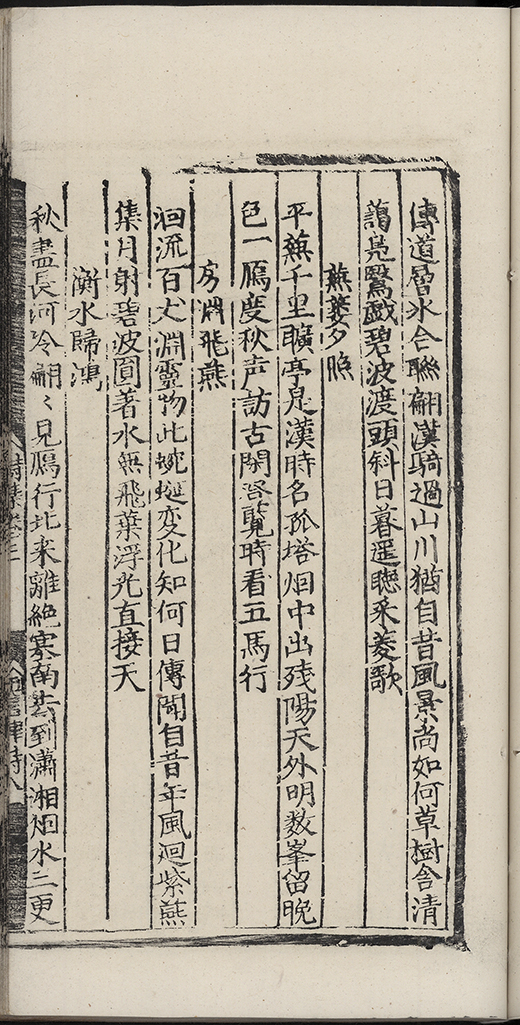 傳道層氷合聯翩漢騎過山川猶自昔風景尚如何草樹含清
藹鳧鷖戲碧波渡頭斜日暮遥聴采菱歌
蕪蔞夕照
平蕪千里曠亭是漢時名孤塔烟中出残陽天外明数峯留晚
色一鴈度秋声訪古閑登覧時看五馬行
房淵飛燕
洄流百丈淵靈物此蜿蜒变化知何日傳聞自昔年風廻紫燕
集月射碧波圓著水無飛葉浮光直接天
衡水歸鴻
秋盡長河冷翩〻見鴈行北来離絶塞南去到瀟湘烟水三更
詩集卷三
五言律詩八